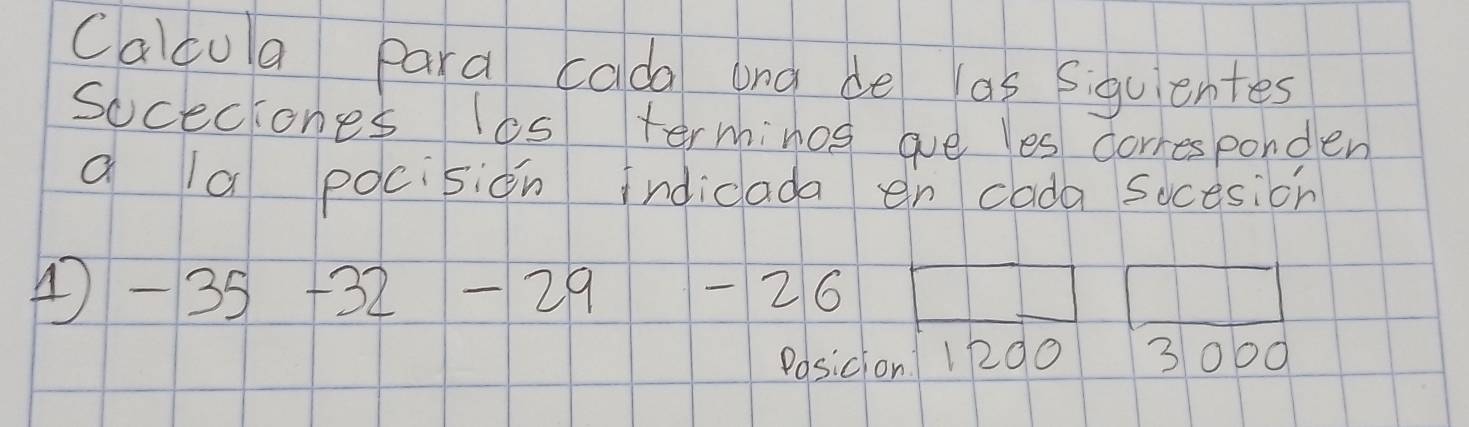 Calcula para cada una de las siguientes
Suceciones los terminos que les corresponden
a la pocisión indicada en cada sucesión
1) -35 -32 -29 -26
Posicion: 1200 3000